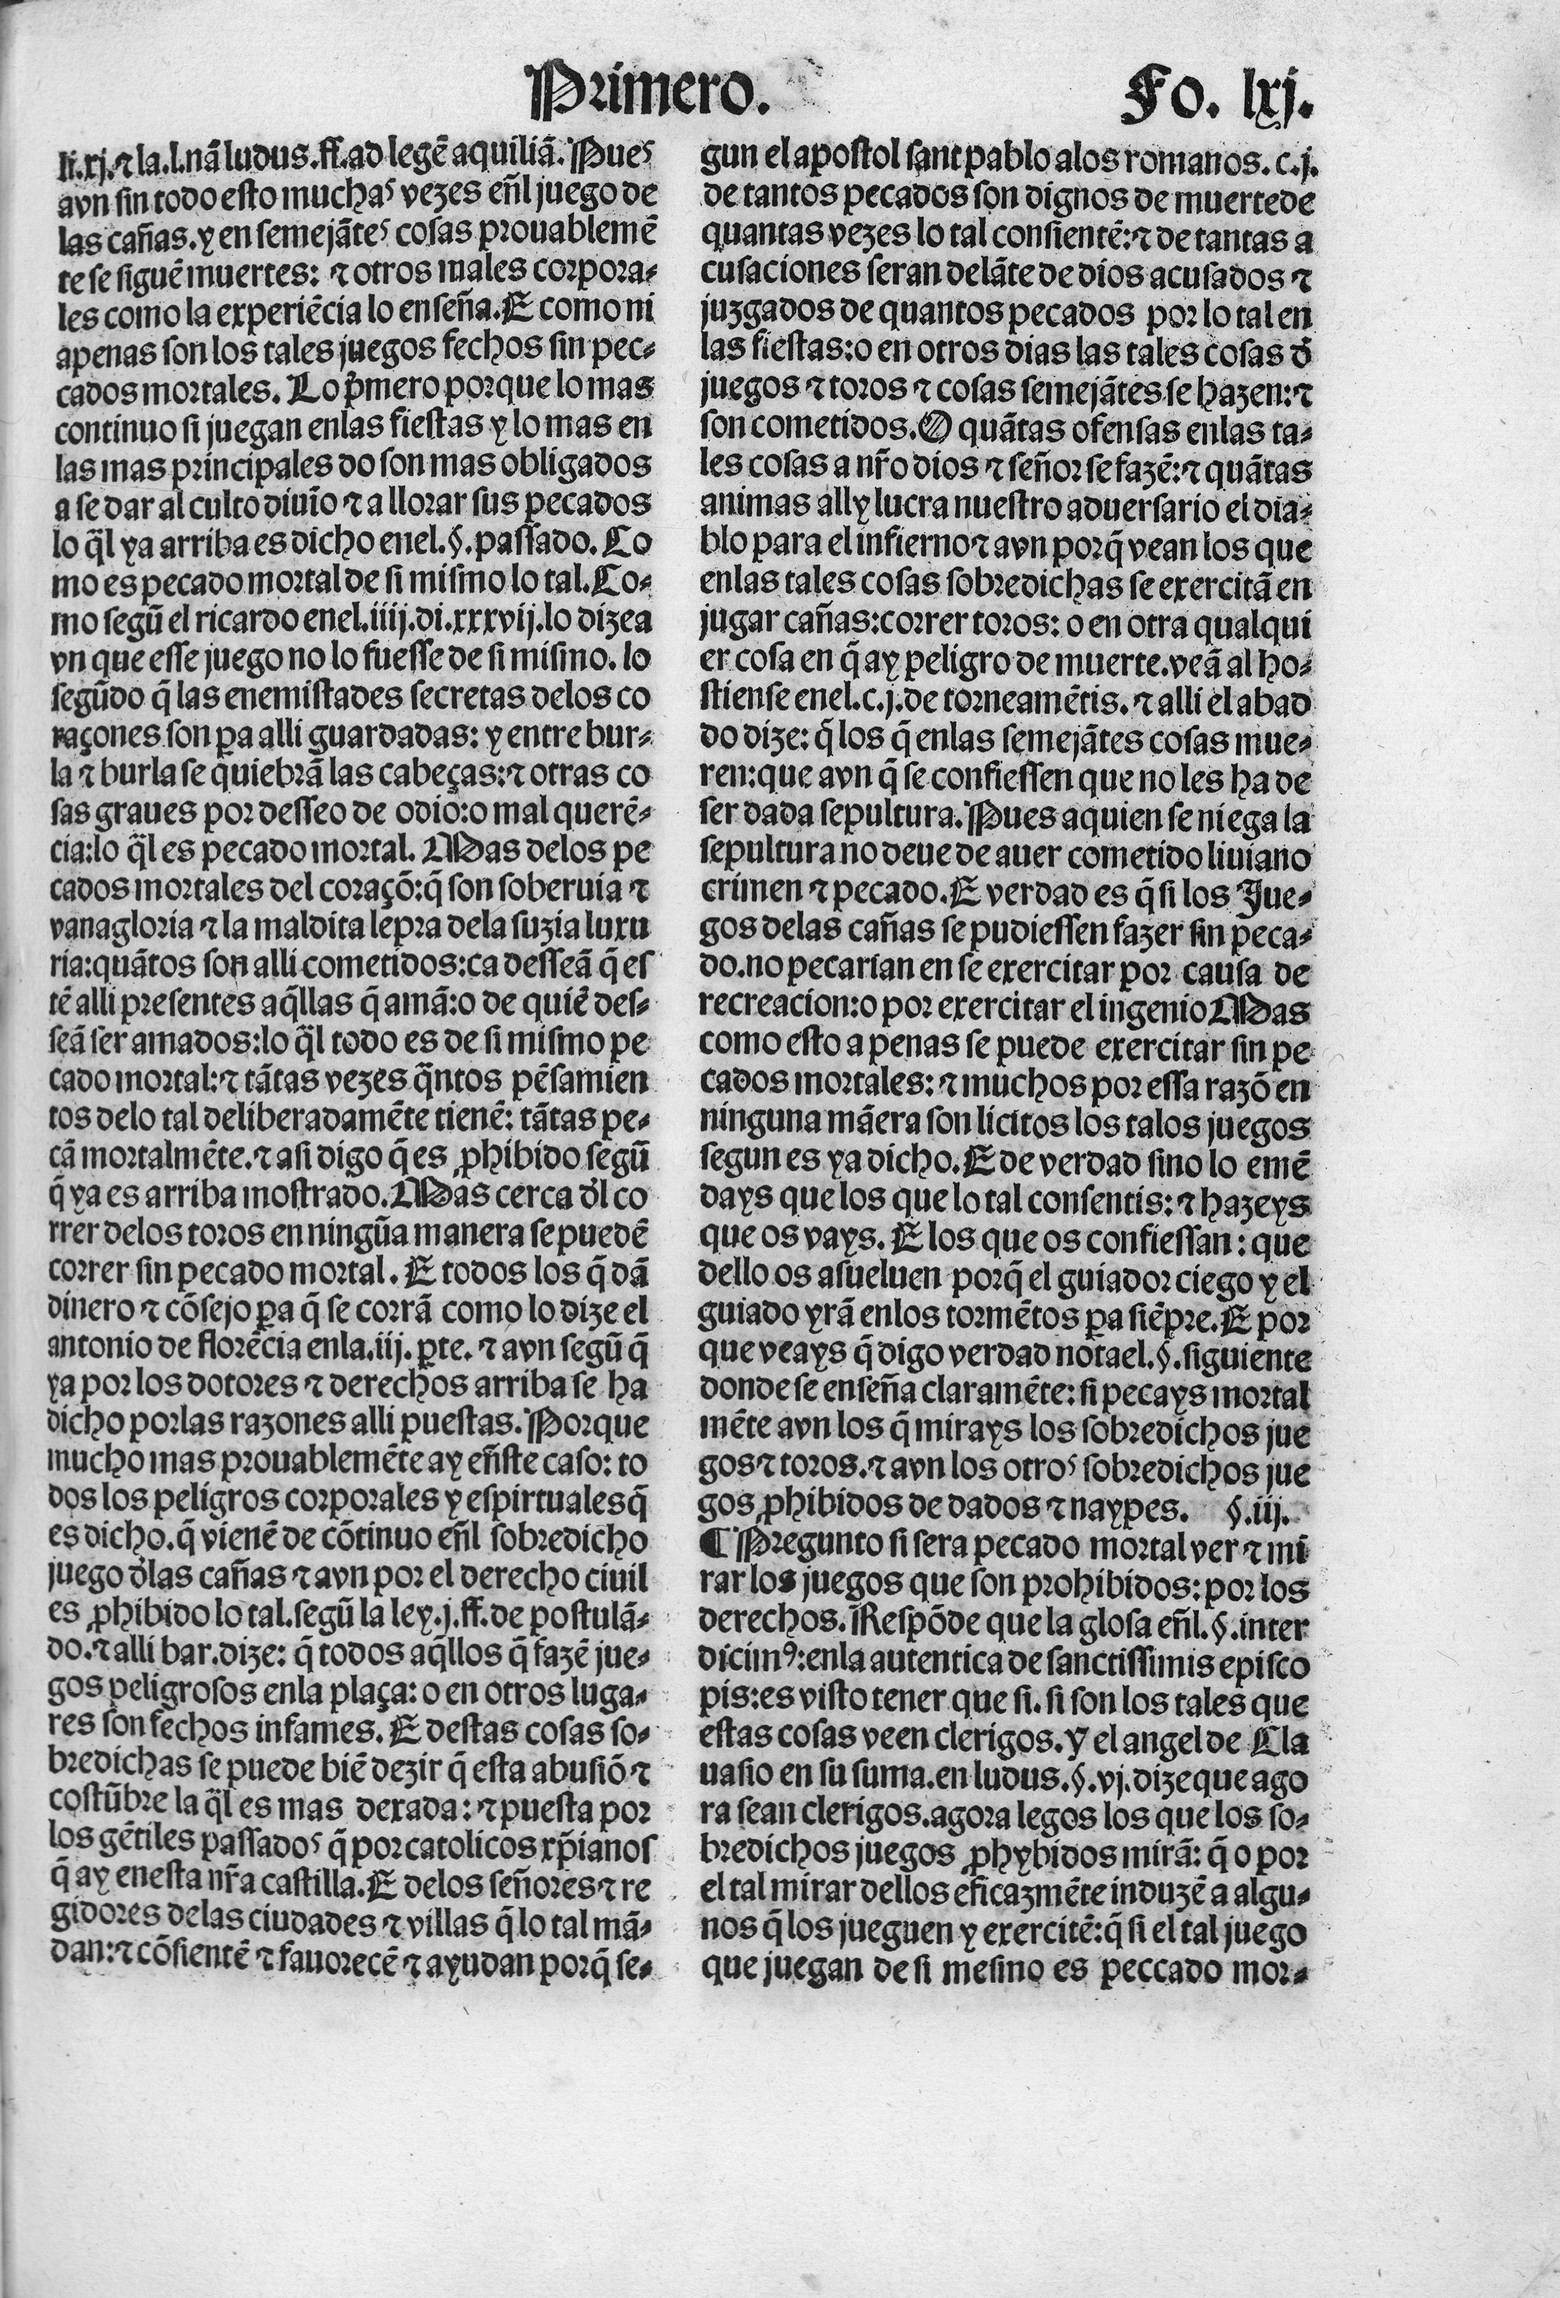 Primero.
Fo. lxj.
li.xj.⁊ la.l.nā ludus.ff.ad legē aquiliā. Pues
avn sin todo esto muchas vezes eñl juego de
las cañas.y en semejātes cosas prouablemē
te se siguē muertes: ⁊ otros males corpora-
les como la experiēcia lo enseña.E como ni
apenas son los tales juegos fechos sin pec-
cados mortales. Lo p̄mero porque lo mas
continuo si juegan enlas fiestas y lo mas en
las mas principales do son mas obligados
a se dar al culto diuīo ⁊ a llorar sus pecados
lo q̄l ya arriba es dicho enel.§.passado. Co
mo es pecado mortal de si mismo lo tal.Co-
mo segū el ricardo enel.iiij.di.xxxvij.lo dize a
vn que esse juego no lo fuesse de si mismo. lo
segūdo q̄ las enemistades secretas delos co
raçones son ꝑa alli guardadas: y entre bur-
la ⁊ burla se quiebrā las cabeças:⁊ otras co
sas graues por desseo de odio:o mal querē-
cia:lo q̄l es pecado mortal. Mas delos pe
cados mortales del coraçō:q̄ son soberuia ⁊
vanagloria ⁊ la maldita lepra dela suzia luxu
ria:quātos son alli cometidos:ca desseā q̄ es
tē alli presentes aq̄llas q̄ amā:o de quiē des-
seā ser amados:lo q̄l todo es de si mismo pe
cado mortal:⁊ tātas vezes q̄ntos pēsamien
tos delo tal deliberadamēte tienē: tātas pe-
cā mortalmēte.⁊ asi digo q̄ es ꝓhibido segū
q̄ ya es arriba mostrado. Mas cerca đl co
rrer delos toros en ningūa manera se puedē
correr sin pecado mortal. E todos los q̄ dā
dinero ⁊ cōsejo ꝑa q̄ se corrā como lo dize el
antonio de florēcia enla.iij. ꝑte. ⁊ avn segū q̄
ya por los dotores ⁊ derechos arriba se ha
dicho porlas razones alli puestas. Porque
mucho mas prouablemēte ay eñste caso: to
dos los peligros corporales y espirtuales q̄
es dicho.q̄ vienē de cōtinuo eñl sobredicho
juego đlas cañas ⁊ avn por el derecho ciuil
es ꝓhibido lo tal.segū la ley.j.ff.de postulā-
do.⁊ alli bar.dize: q̄ todos aq̄llos q̄ fazē jue-
gos peligrosos enla plaça: o en otros luga-
res son fechos infames. E destas cosas so-
bredichas se puede biē dezir q̄ esta abusiō ⁊
costūbre la q̄l es mas dexada: ⁊ puesta por
los gētiles passados q̄ por catolicos xp̄ianos
q̄ ay enesta nr̄a castilla.E delos señores ⁊ re
gidores delas ciudades ⁊ villas q̄ lo tal mā-
dan:⁊ cōsientē ⁊ fauorecē ⁊ ayudan porq̄ se-
gun el apostol sant pablo alos romanos.c.j.
de tantos pecados son dignos de muerte de
quantas vezes lo tal consientē:⁊ de tantas a
cusaciones seran delāte de dios acusados ⁊
juzgados de quantos pecados por lo tal en
las fiestas:o en otros dias las tales cosas đ
juegos ⁊ toros ⁊ cosas semejātes se hazen:⁊
son cometidos.O quātas ofensas enlas ta-
les cosas a nr̄o dios ⁊ señor se fazē:⁊ quātas
animas ally lucra nuestro aduersario el dia-
blo para el infierno ⁊ avn porq̄ vean los que
enlas tales cosas sobredichas se exercitā en
jugar cañas:correr toros: o en otra qualqui
er cosa en q̄ ay peligro de muerte.veā al ho-
stiense enel.c.j.de torneamētis. ⁊ alli el abad
do dize: q̄ los q̄ enlas semejātes cosas mue-
ren:que avn q̄ se confiessen que no les ha de
ser dada sepultura. Pues a quien se niega la
sepultura no deue de auer cometido liuiano
crimen ⁊ pecado.E verdad es q̄ si los Jue-
gos delas cañas se pudiessen fazer sin peca-
do.no pecarian en se exercitar por causa de
recreacion:o por exercitar el ingenio Mas
como esto a penas se puede exercitar sin pe
cados mortales: ⁊ muchos por essa razō en
ninguna māera son licitos los talos juegos
segun es ya dicho.E de verdad sino lo emē
days que los que lo tal consentis: ⁊ hazeys
que os vays. E los que os confiessan: que
dello os asueluen porq̄ el guiador ciego y el
guiado yrā enlos tormētos ꝑa siēpre.E por
que veays q̄ digo verdad nota el.§.siguiente
donde se enseña claramēte: si pecays mortal
mēte avn los q̄ mirays los sobredichos jue
gos ⁊ toros.⁊ avn los otros sobredichos jue
gos ꝓhibidos de dados ⁊ naypes. §.iij.
¶ Pregunto si sera pecado mortal ver ⁊ mi
rar los juegos que son prohibidos: por los
derechos. Respōde que la glosa eñl.§.inter
dicimꝰ:enla autentica de sanctissimis episco
pis:es visto tener que si. si son los tales que
estas cosas veen clerigos.Y el angel de Cla
uasio en su suma.en ludus.§.vj.dize que ago
ra sean clerigos.agora legos los que los so-
bredichos juegos ꝓhybidos mirā: q̄ o por
el tal mirar dellos eficazmēte induzē a algu-
nos q̄ los jueguen y exercitē:q̄ si el tal juego
que juegan de si mesmo es peccado mor-